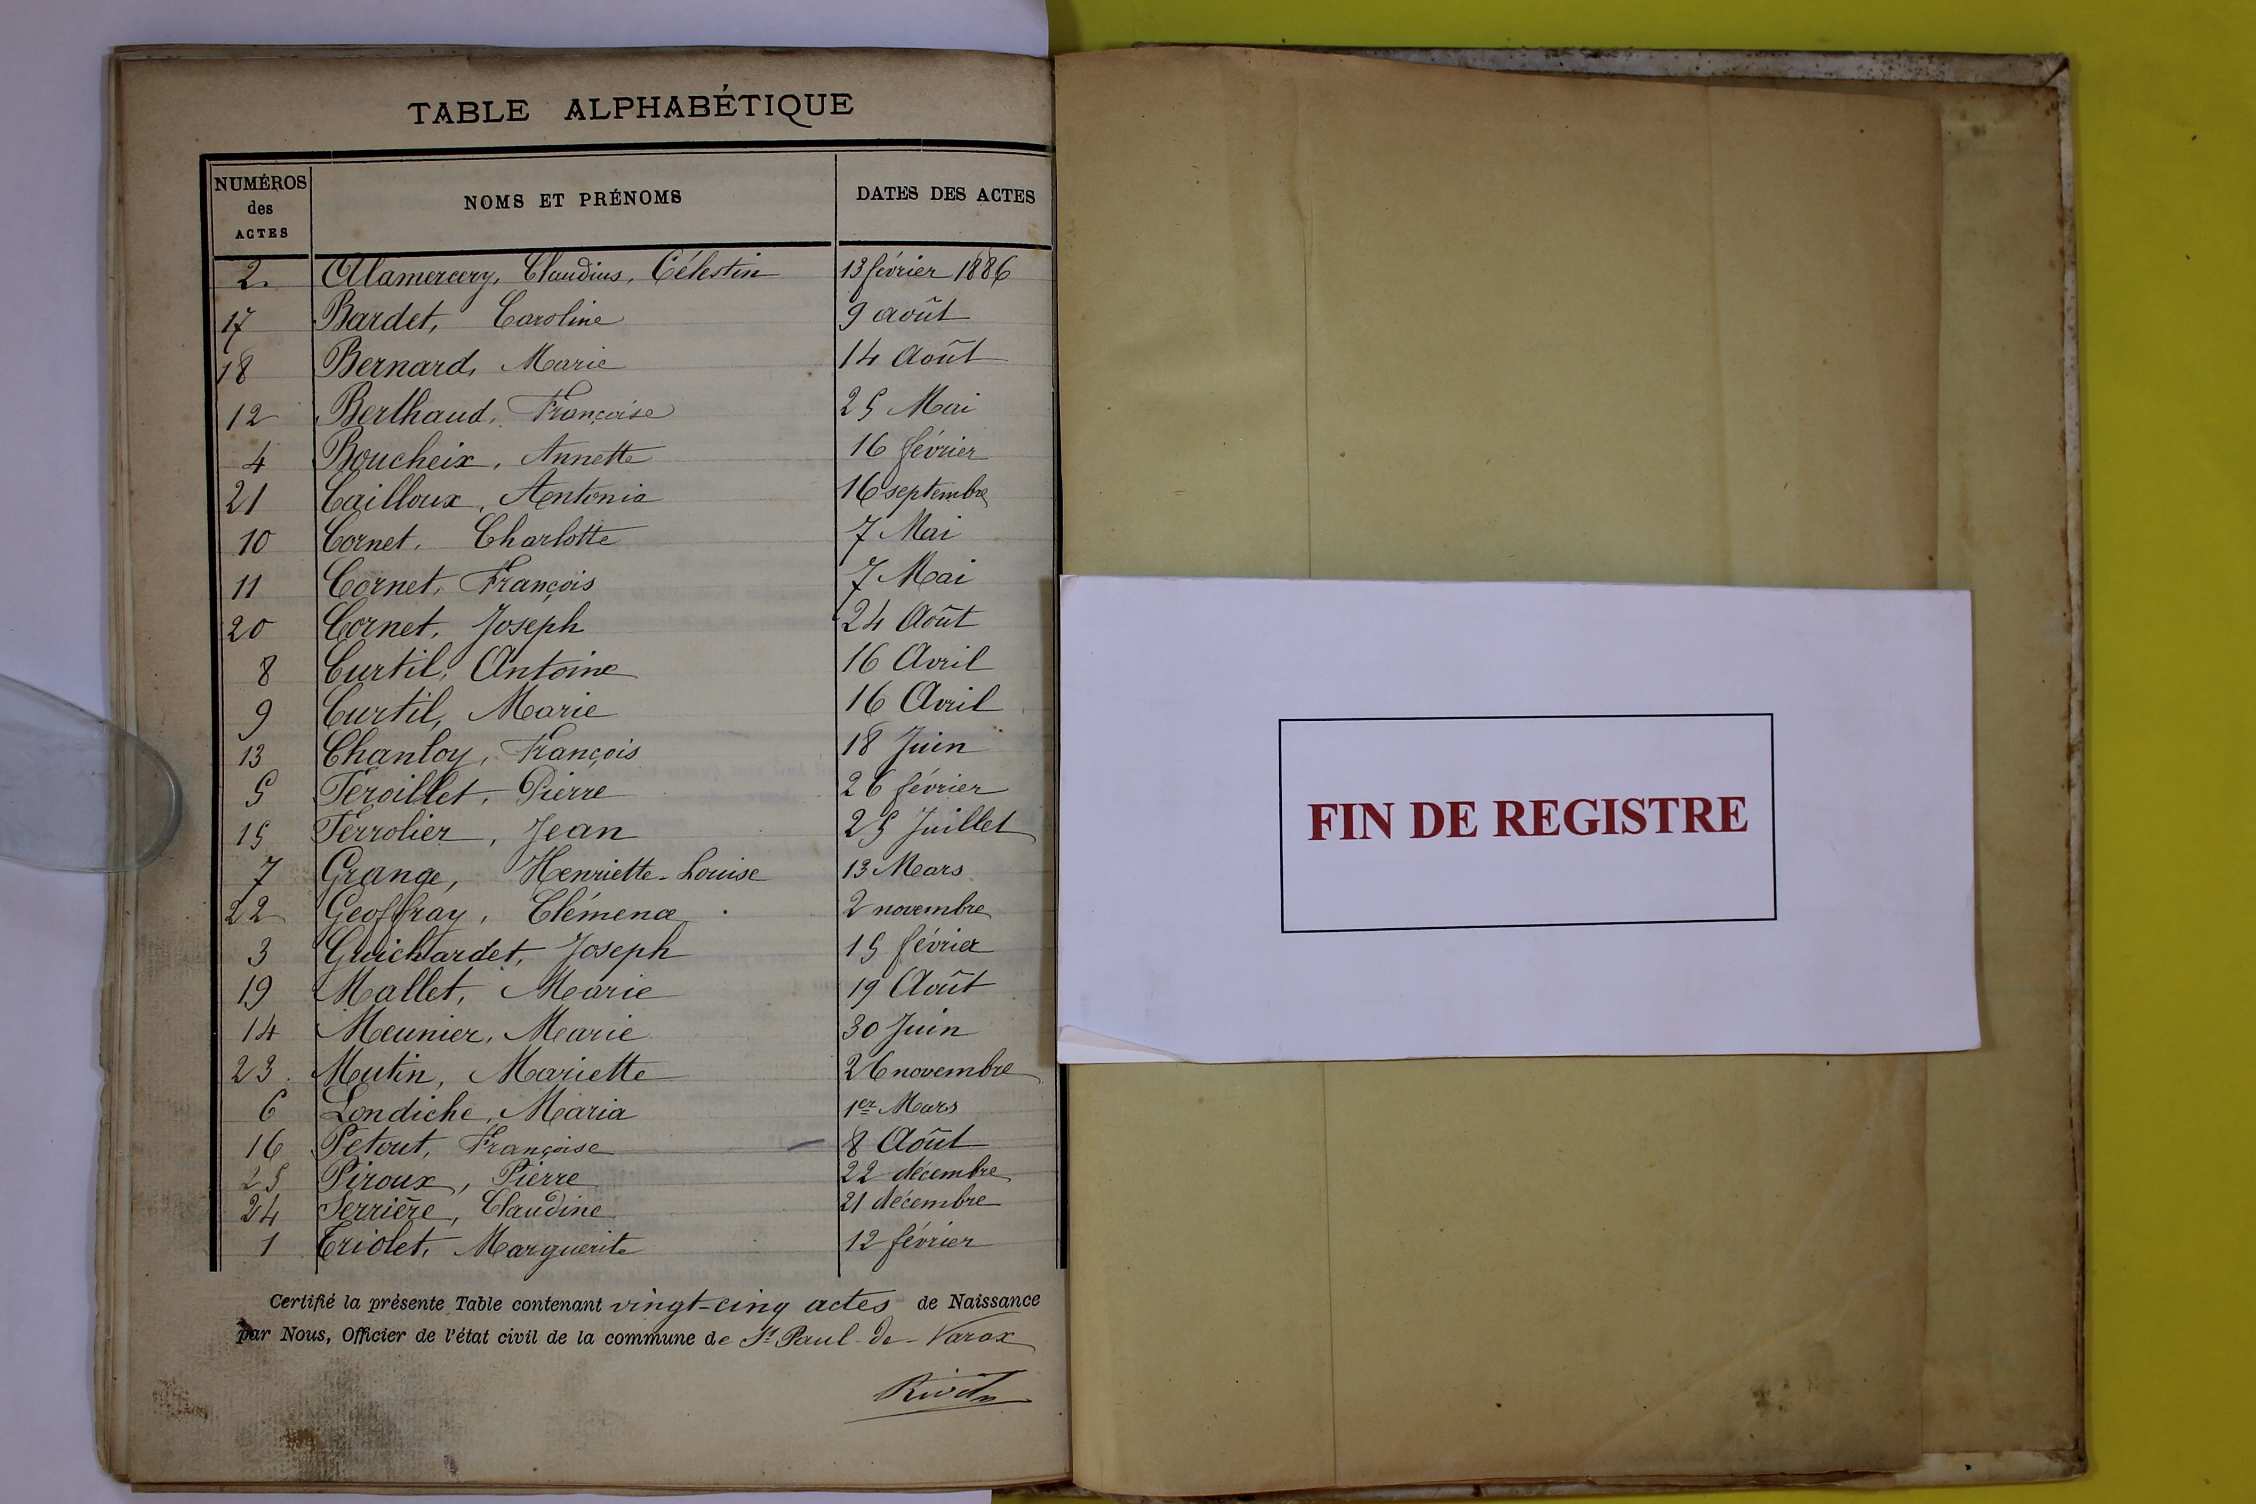 TABLE ALPHABÉTIQUE
NUMÉROS des ACTES NOMS ET PRÉNOMS DATES DES ACTES
2. Alamercery, Claudius, Célestin 13 février 1886
17 Bardet, Caroline 9 août
18 Bernard, Marie 14 Août
12 Berthaud, Françoise 25 Mai
4 Boucheix, Annette 16 février
21 Cailloux, Antonia 16 septembre
10 Cornet, Charlotte 7 Mai
11 Cornet, François 7 Mai
20 Cornet, Joseph 24 Août
8 Curtil, Antoine 16 Avril
9 Curtil, Marie 16 Avril
13 Chanloy, François 18 Juin
5 Féroillet, Pierre 26 février
15 Ferrolier, Jean 25 Juillet
7 Grange, Henriette-Louise 13 Mars
22 Geoffray, Clémence 2 novembre
3 Guichardet, Joseph 15 février
19 Mallet, Marie 19 Août
14 Meunier, Marie 30 Juin
23. Mutin, Mariette 26 novembre
6 Londiche, Maria 1er Mars
16 Petout, Françoise 8 Août
25 Piroux, Pierre 22 décembre
24 Serrière, Claudine 21 décembre
1 Triolet, Marguerite 12 février
Certifié la présente Table contenant vingt-cinq actes de Naissance
par Nous, Officier de l'état civil de la commune de St Paul-de-Varax
FIN DE REGISTRE